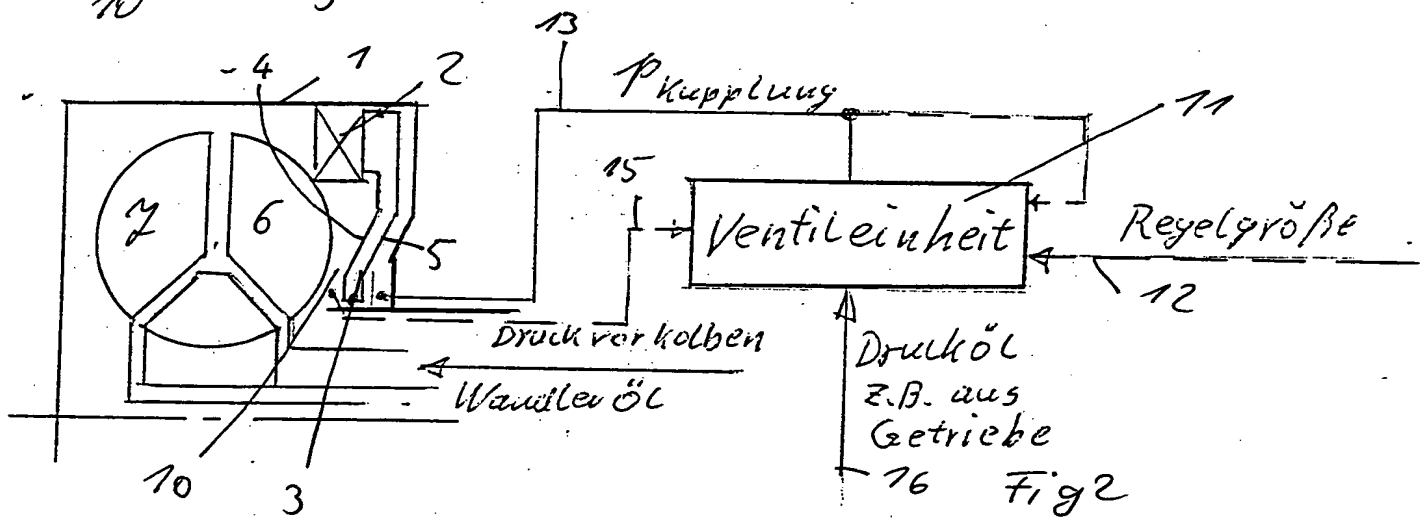 10
13
- 4
1
2
P Kupplung
11
15
7
6
5
Ventileinheit
Regelgröße
12
Druck vor Kolben
Wandleröl
Drucköl
z.B. aus
Getriebe
10
3
16
Fig 2